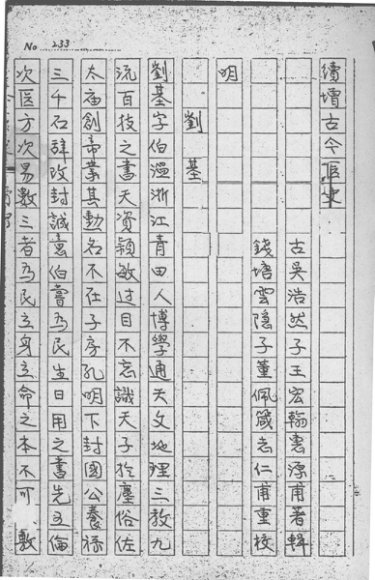 No 233
續增古今醫史
古吳浩然子王宏翰惠源甫著輯
錢塘雲隱子董佩箴志仁甫重校
明
劉基
劉基字伯溫浙江青田人博學通天文地理三教九
流百技之書天資穎敏过目不忘識天子於塵俗佐
太祖創帝業其勳名不在子房孔明下封國公養祿
三千石辞改封誠意伯嘗為民生日用之書先五倫
次医方次易數三者為民立身立命之本不可數